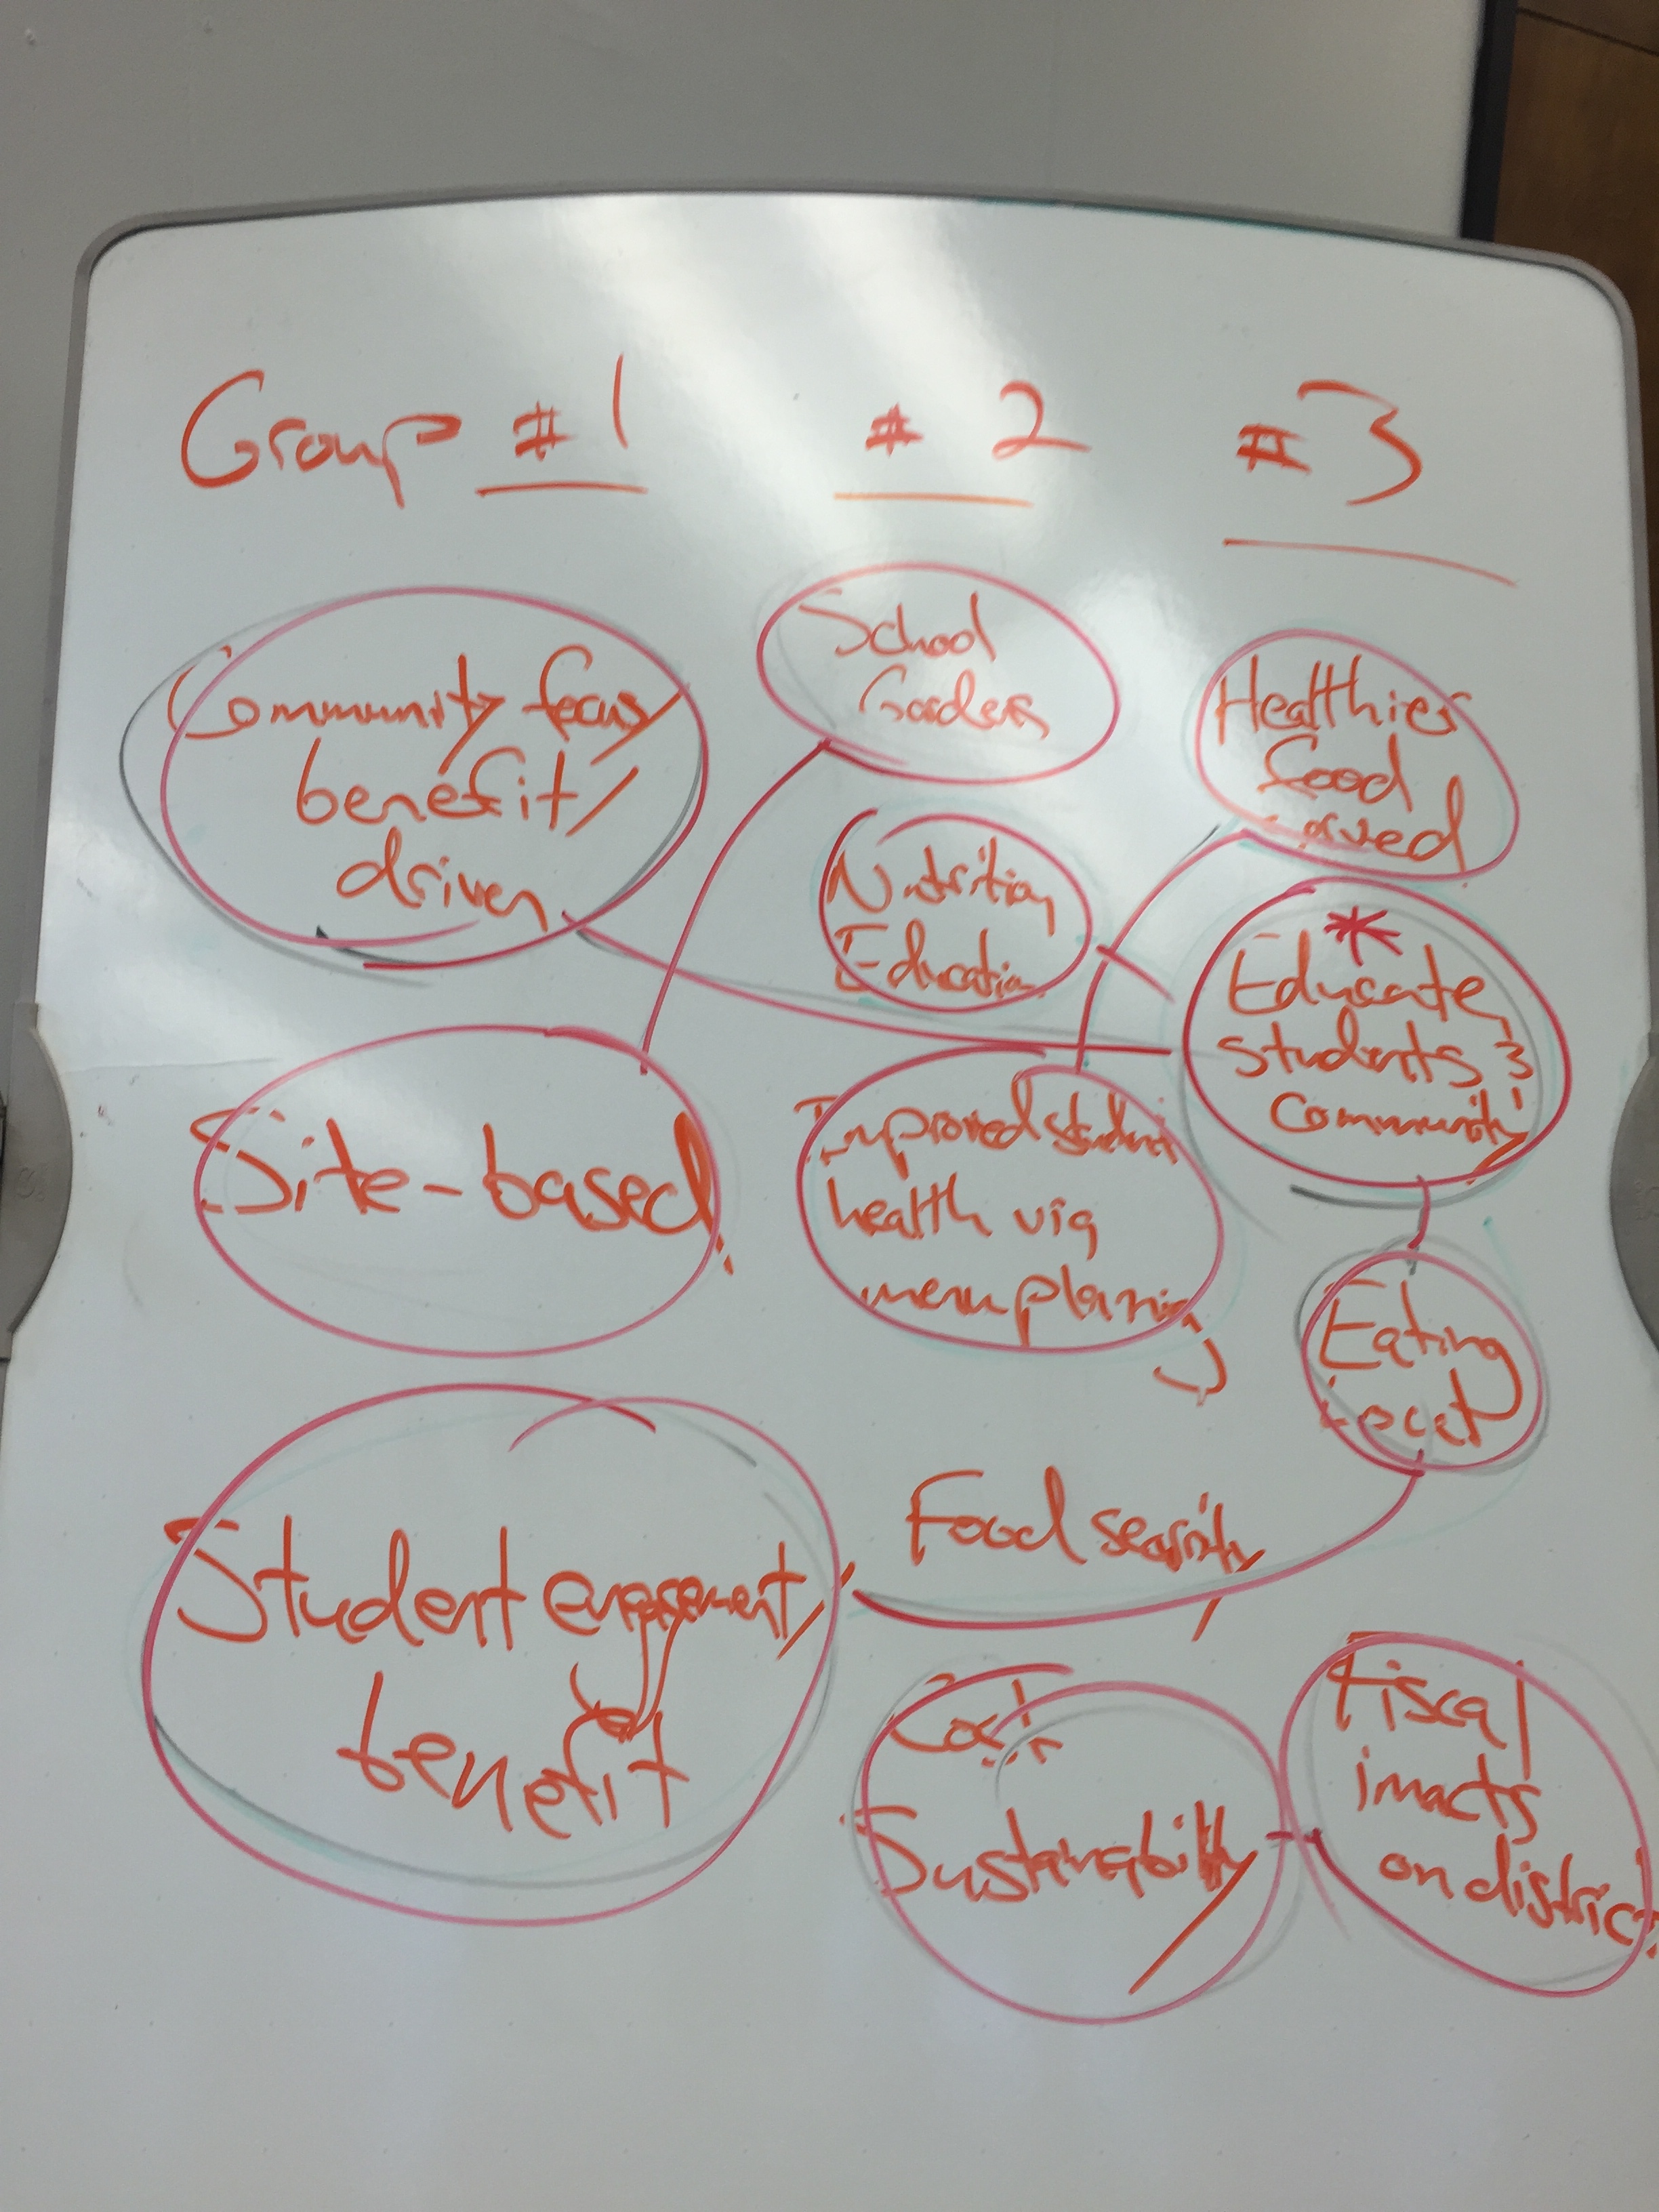 Group #1 #2 #3
Community focus/
benefit/
driven
Site-based
Student engagement/
benefit
School
Gardens
Nutrition
Education
Improved student
health via
menu planning
Food security
Cost
Sustainability
Healthier
food
served
*
Educate
students &
community
Eating
Local
Fiscal
imacts
on district